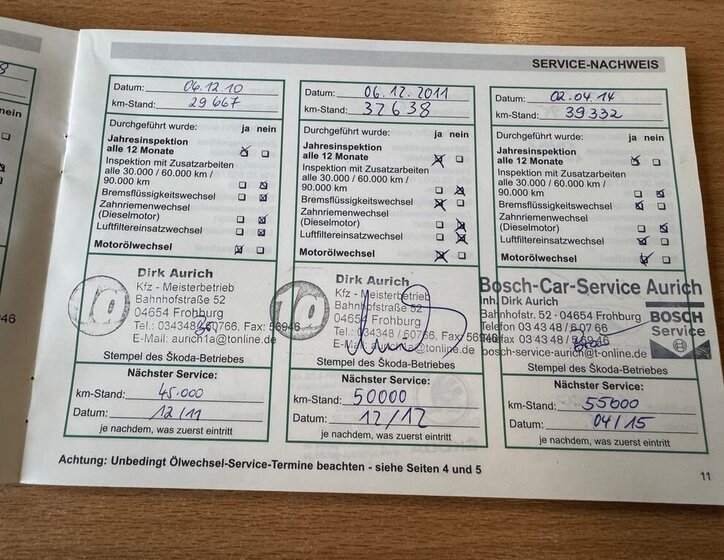 SERVICE-NACHWEIS
Datum: 06.12.10
km-Stand: 29667
Durchgeführt wurde: ja nein
Jahresinspektion
alle 12 Monate
Inspektion mit Zusatzarbeiten
alle 30.000 / 60.000 km /
90.000 km
Bremsflüssigkeitswechsel
Zahnriemenwechsel
(Dieselmotor)
Luftfiltereinsatzwechsel
Motorölwechsel
10
Dirk Aurich
Kfz - Meisterbetrieb
Bahnhofstraße 52
04654 Frohburg
Tel.: 034348 / 60766, Fax: 56946
E-Mail: aurich1a@tonline.de
Stempel des Škoda-Betriebes
Nächster Service:
km-Stand: 45.000
Datum: 12/11
je nachdem, was zuerst eintritt
Datum: 06.12.2011
km-Stand: 37638
Durchgeführt wurde: ja nein
Jahresinspektion
alle 12 Monate
Inspektion mit Zusatzarbeiten
alle 30.000 / 60.000 km /
90.000 km
Bremsflüssigkeitswechsel
Zahnriemenwechsel
(Dieselmotor)
Luftfiltereinsatzwechsel
Motorölwechsel
10
Dirk Aurich
Kfz - Meisterbetrieb
Bahnhofstraße 52
04654 Frohburg
Tel.: 034348 / 60766, Fax: 56946
E-Mail: aurich1a@tonline.de
Stempel des Škoda-Betriebes
Nächster Service:
km-Stand: 50000
Datum: 12/12
je nachdem, was zuerst eintritt
Datum: 02.04.14
km-Stand: 39332
Durchgeführt wurde: ja nein
Jahresinspektion
alle 12 Monate
Inspektion mit Zusatzarbeiten
alle 30.000 / 60.000 km /
90.000 km
Bremsflüssigkeitswechsel
Zahnriemenwechsel
(Dieselmotor)
Luftfiltereinsatzwechsel
Motorölwechsel
Bosch-Car-Service Aurich
Inh. Dirk Aurich
Bahnhofstr. 52 · 04654 Frohburg
Telefon 03 43 48 / 607 66
Telefax 03 43 48 / 569 46
bosch-service-aurich@t-online.de
BOSCH
Service
Stempel des Škoda-Betriebes
Nächster Service:
km-Stand: 55000
Datum: 04/15
je nachdem, was zuerst eintritt
Achtung: Unbedingt Ölwechsel-Service-Termine beachten - siehe Seiten 4 und 5
11